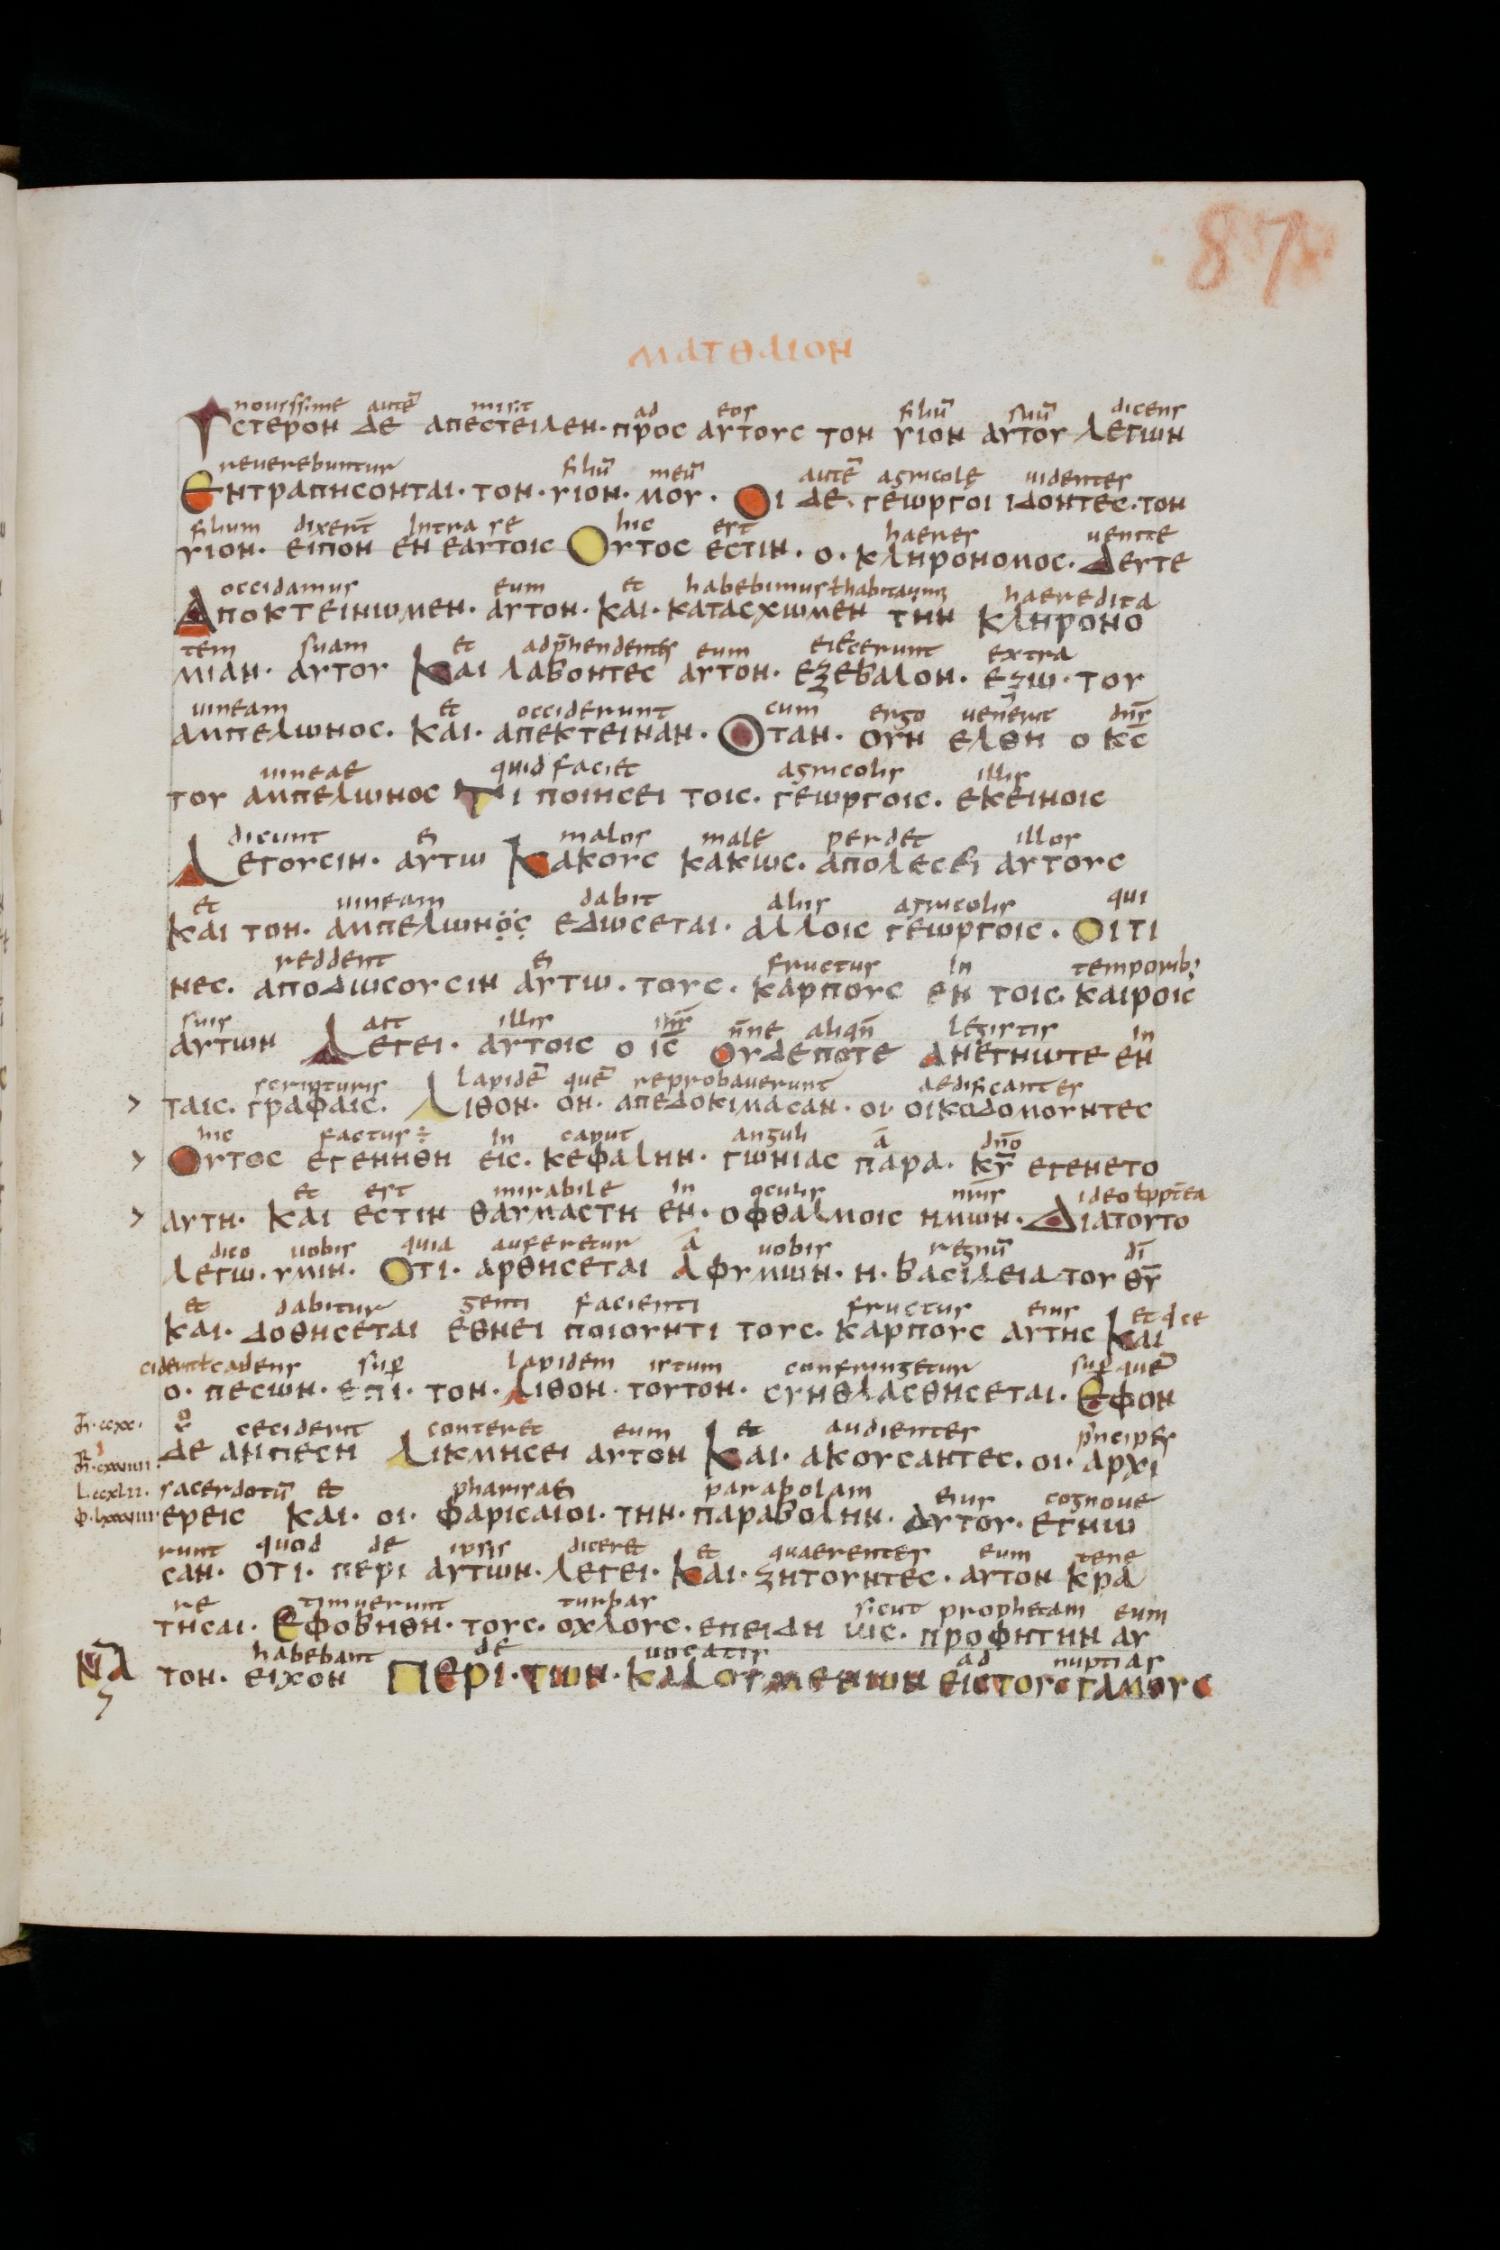 87
ΜΑΤΘΑΙΟΝ
nouissime autē misit ad eos filiū suū dicens
ΥCΤΕΡΟΝ ΔΕ ΑΠΕCΤΕΙΛΕΝ· ΠΡΟC ΑΥΤΟΥC ΤΟΝ ΥΙΟΝ ΑΥΤΟΥ ΛΕΓΩΝ
reuerebuntur filiū meū autē agricolę uidentes
ΕΝΤΡΑΠΗCΟΝΤΑΙ· ΤΟΝ· ΥΙΟΝ· ΜΟΥ· ΟΙ ΔΕ· ΓΕΩΡΓΟΙ ΙΔΟΝΤΕC· ΤΟΝ
filium dixert̄ intra se hic est haeres uenite
ΥΙΟΝ· ΕΙΠΟΝ ΕΝ ΕΑΥΤΟΙC ΟΥΤΟC ΕCΤΙΝ· Ο· ΚΛΗΡΟΝΟΜΟC· ΔΕΥΤΕ
occidamus eum et habebimus ł haeredita
ΑΠΟΚΤΕΙΝΩΜΕΝ· ΑΥΤΟΝ· ΚΑΙ· ΚΑΤΑCΧΩΜΕΝ ΤΗΝ ΚΛΗΡΟΝΟ
tem suam et adp̄hendentes eum eiecerunt extra
ΜΙΑΝ· ΑΥΤΟΥ ΚΑΙ ΛΑΒΟΝΤΕC ΑΥΤΟΝ· ΕΞΕΒΑΛΟΝ· ΕΞΩ· ΤΟΥ
uineam et occiderunt cum ergo uen̄erit dn̄s
ΑΜΠΕΛΩΝΟC· ΚΑΙ· ΑΠΕΚΤΕΙΝΑΝ· ΟΤΑΝ· ΟΥΝ ΕΛΘΗ Ο Κ̅C̅
uineae quid faciet agricolis illis
ΤΟΥ ΑΜΠΕΛΩΝΟC ΤΙ ΠΟΙΗCΕΙ ΤΟΙC· ΓΕΩΡΓΟΙC· ΕΚΕΙΝΟΙC
dicunt ei malos male perdet illos
ΛΕΓΟΥCΙΝ· ΑΥΤΩ ΚΑΚΟΥC ΚΑΚΩC· ΑΠΟΛΕCΕΙ ΑΥΤΟΥC
et uineam dabit aliis agricolis qui
ΚΑΙ ΤΟΝ· ΑΜΠΕΛΩΝΟC ΕΔΩCΕΤΑΙ· ΑΛΛΟΙC ΓΕΩΡΓΟΙC· ΟΙΤΙ
reddent ei fructus in temporib;
ΝΕC· ΑΠΟΔΩCΟΥCΙΝ ΑΥΤΩ· ΤΟΥC· ΚΑΡΠΟΥC ΕΝ ΤΟΙC· ΚΑΙΡΟΙC
suis ait illis ih̄s n̄ne aliqn̄ legistis in
ΑΥΤΩΝ ΛΕΓΕΙ· ΑΥΤΟΙC Ο Ι̅C̅ ΟΥΔΕΠΟΤΕ ΑΝΕΓΝΩΤΕ ΕΝ
scripturis lapidē quē reprobauerunt aedificantes
> ΤΑΙC· ΓΡΑΦΑΙC· ΛΙΘΟΝ· ΟΝ· ΑΠΕΔΟΚΙΜΑCΑΝ· ΟΙ· ΟΙΚΟΔΟΜΟΥΝΤΕC
hic factus ÷ in caput anguli ā dn̄o
> ΟΥΤΟC ΕΓΕΝΗΘΗ ΕΙC· ΚΕΦΑΛΗΝ· ΓΩΝΙΑC ΠΑΡΑ· Κ̅Υ̅ ΕΓΕΝΕΤΟ
et est mirabile in oculis nr̄is ideo ł ppt̄ea
> ΑΥΤΗ· ΚΑΙ ΕCΤΙΝ ΘΑΥΜΑCΤΗ ΕΝ· ΟΦΘΑΛΜΟΙC ΗΜΩΝ· ΔΙΑΤΟΥΤΟ
dico uobis quia auferetur ā uobis regnū dī
ΛΕΓΩ· ΥΜΙΝ· ΟΤΙ· ΑΡΘΗCΕΤΑΙ ΑΦΥΜΩΝ· Η· ΒΑCΙΛΕΙΑ ΤΟΥ Θ̅Υ̅
et dabitur genti facienti fructus eius et q ce
ΚΑΙ· ΔΟΘΗCΕΤΑΙ ΕΘΝΕΙ ΠΟΙΟΥΝΤΙ ΤΟΥC· ΚΑΡΠΟΥC ΑΥΤΗC ΚΑΙ
ciderit ł cadens sup̄ lapidem istum confringetur sup̄ quē
Ο· ΠΕCΩΝ· ΕΠΙ· ΤΟΝ· ΛΙΘΟΝ· ΤΟΥΤΟΝ· CΥΝΘΛΑCΘΗCΕΤΑΙ· ΕΦΟΝ
ceciderit conteret eum et audientes p̄ncipes
ΔΕ ΑΝ ΠΕCΗ ΛΙΚΜΗCΕΙ ΑΥΤΟΝ ΚΑΙ· ΑΚΟΥCΑΝΤΕC· ΟΙ· ΑΡΧΙ
sacerdotū et pharisaei parabolam eius cognoue
ΕΡΕΙC ΚΑΙ· ΟΙ· ΦΑΡΙCΑΙΟΙ· ΤΗΝ· ΠΑΡΑΒΟΛΗΝ· ΑΥΤΟΥ· ΕΓΝΩ
runt quod de ipsis diceret et quaerentes eum tene
CΑΝ· ΟΤΙ· ΠΕΡΙ ΑΥΤΩΝ· ΛΕΓΕΙ· ΚΑΙ· ΖΗΤΟΥΝΤΕC· ΑΥΤΟΝ ΚΡΑ
re timuerunt turbas sicut prophetam eum
ΤΗCΑΙ· ΕΦΟΒΗΘΗ· ΤΟΥC· ΟΧΛΟΥC· ΕΠΕΙΔΗ ΩC· ΠΡΟΦΗΤΗΝ ΑΥ
habebant de uocatis ad nuptias
ΝΑ ΤΟΝ· ΕΙΧΟΝ ΠΕΡΙ· ΤΩΝ· ΚΑΛΟΥΜΕΝΩΝ ΕΙCΤΟΥC ΓΑΜΟΥC